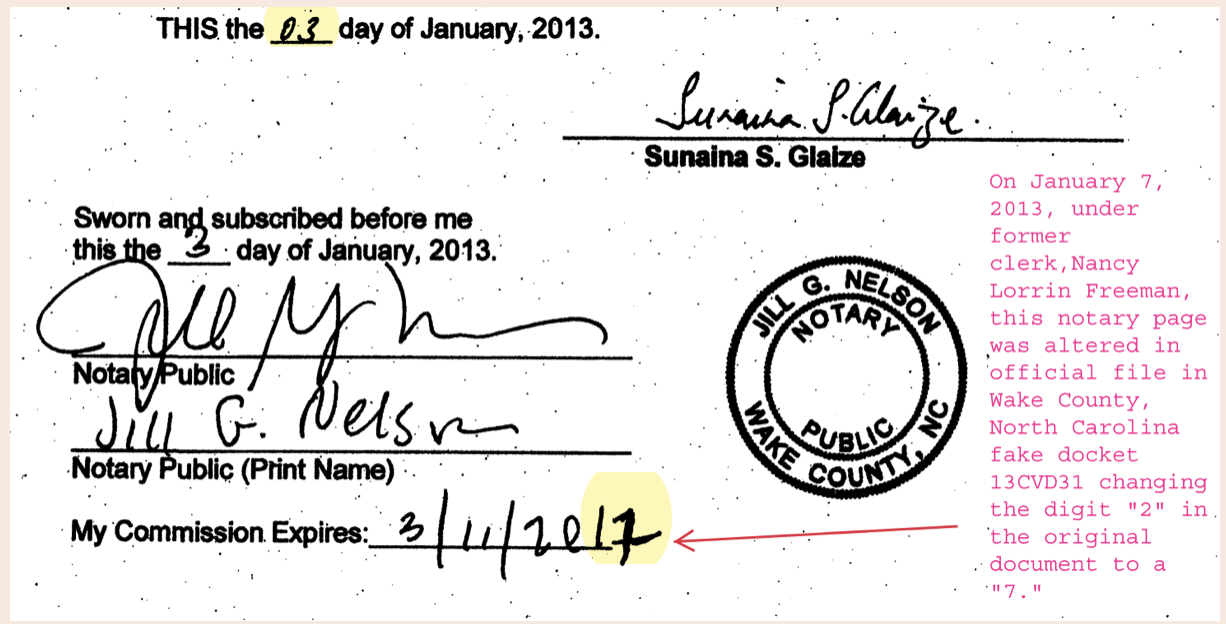 THIS the 03 day of January, 2013.
Sunaina S. Glaize
Sunaina S. Glaize
Sworn and subscribed before me
this the 3 day of January, 2013.
Notary Public
Jill G. Nelson
Notary Public (Print Name)
My Commission Expires: 3/11/2017
JILL G. NELSON
NOTARY
PUBLIC
WAKE COUNTY, NC
On January 7,
2013, under
former
clerk,Nancy
Lorrin Freeman,
this notary page
was altered in
official file in
Wake County,
North Carolina
fake docket
13CVD31 changing
the digit "2" in
the original
document to a
"7."